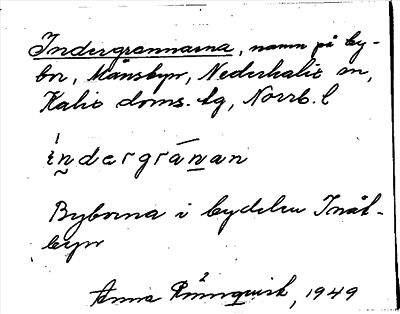 Indergrannarna, namn på by-
bor, Månsbyn, Nederkalix sn,
Kalix doms. tg, Norrb. l
i̍n̰dergrānan
Byborna i bydelen Inåt-
byn
Anna Rönnquist, 1949